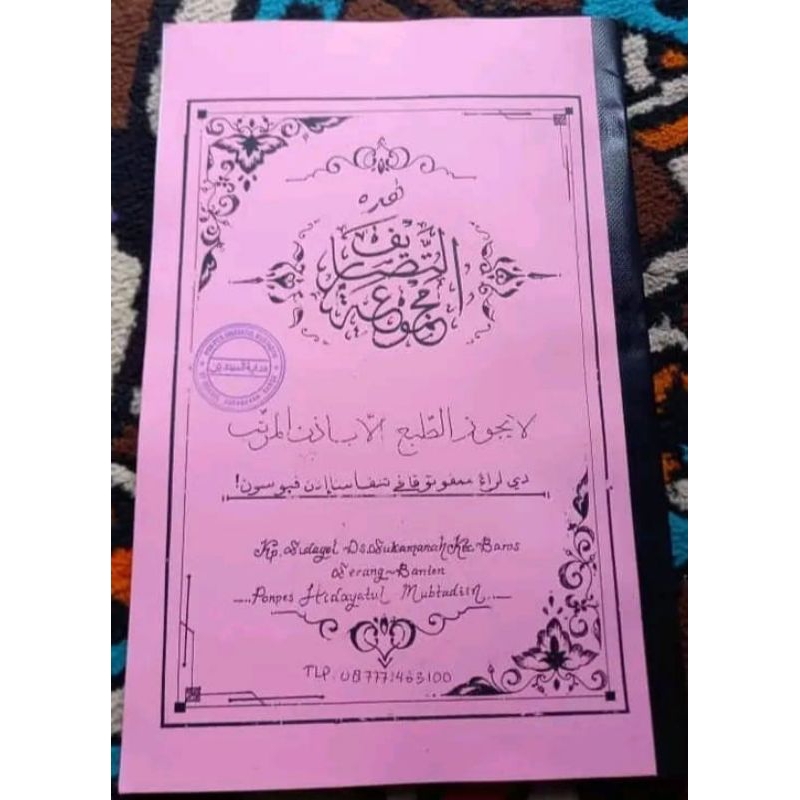 هذه
مجموعة التصاريف
هداية المبتدئين
لا يجوز الطّبع الّا باذن المرتّب
دي لراڠ ممفوتوقافي تنفا سإذن ڤيوسون!
Kp. Sidagel Ds. Sukamanah Kec. Baros
Serang ~ Banten
Ponpes Hidayatul Mubtadiin
TLP. 087771463100